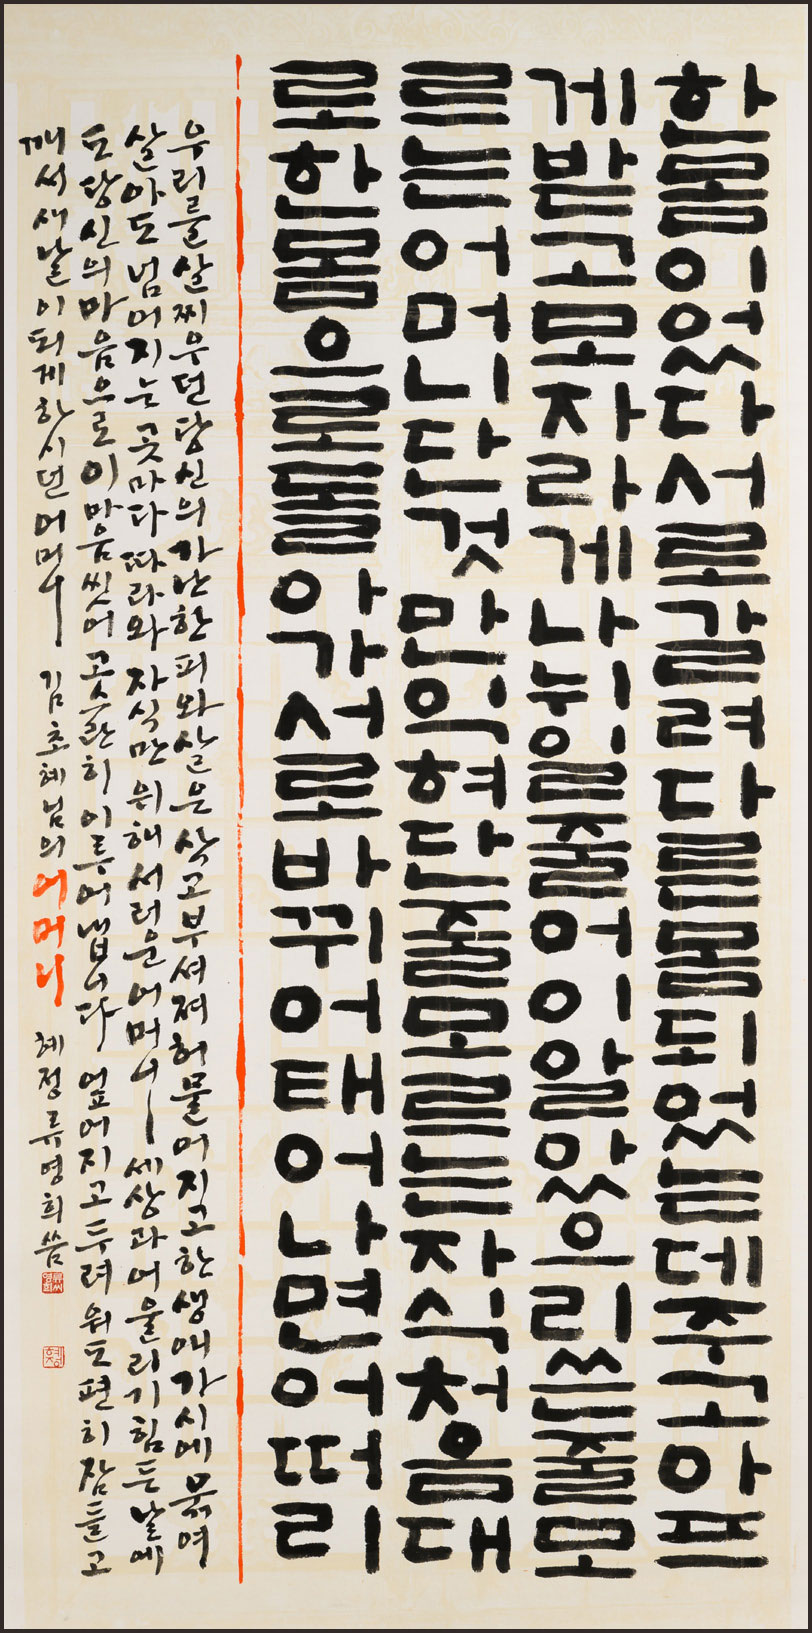 한몸이었다서로갈려다른몸되었는데주고아프
게받고모자라게나뉘일줄어이알았으리쓴줄모
르는어머니단것만익혀단줄모르는자식처음대
로한몸으로돌아가서로바뀌어태어나면어떠리
우리를살찌우던당신의가난한피와살은삭고부셔져허물어지고한생애가시에묶여
살아도넘어지는곳마다따라와자식만위해서러운어머니 세상과어울리기힘든날에
도당신의마음으로이마음씻어고스란히이루어냅니다 엎어지고두려워도편히잠들고
깨서새날이되게하시던어머니 김초혜님의 어머니 혜정류영희씀